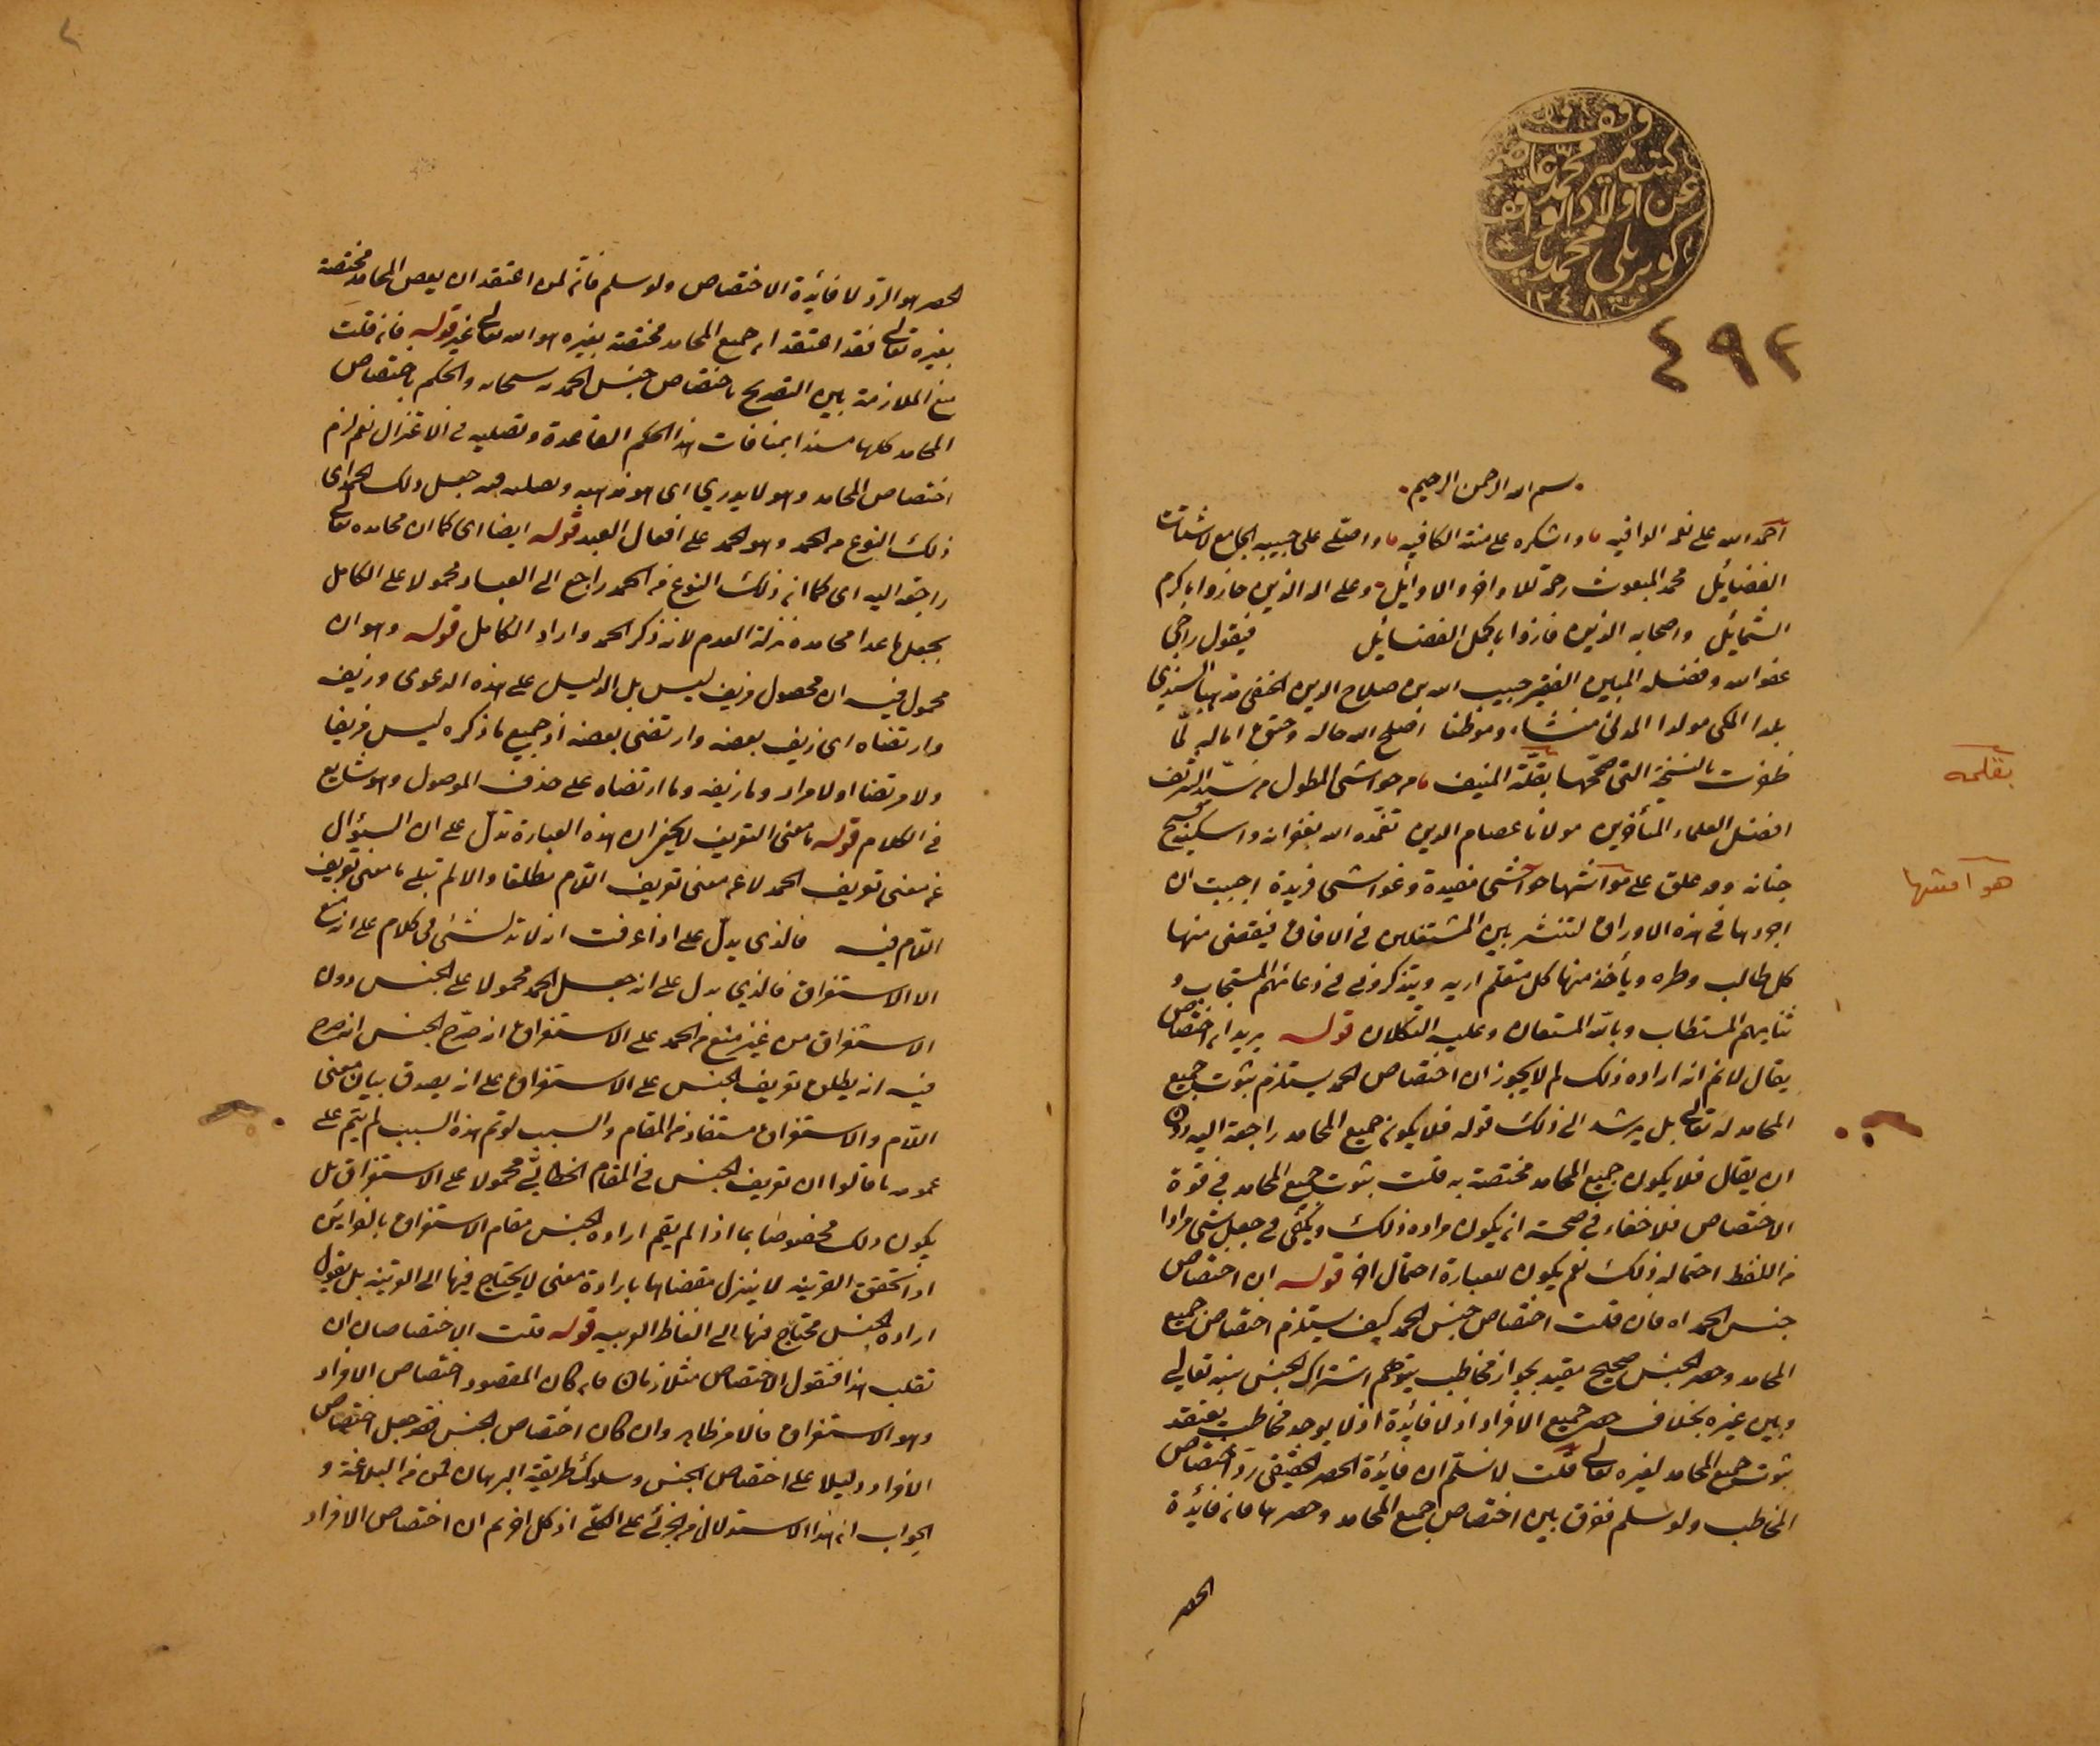 وقف
كتب مير محمد عاصم
عن اولاد الواقف
كوبريلي محمد باشا
١٢٤٨
٤٩٢
بسم الله الرحمن الرحيم
احمد الله على نعمه الوافيه واشكره على مننه الكافيه واصلي على حبيبه الجامع لاشتات
الفضايل محمد المبعوث رحمة للاواخر والاوايل وعلى اله الذين حازوا باكرم
الشمايل واصحابه الذين فازوا باكمل الفضايل فيقول راجي
عفو الله وفضله المبين الفقير حبيب الله بن صلاح الدين الحنفي مذهبا السندي
بلدا المكي مولدا المدني منشاء وموطنا اصلح الله حاله وحقق اماله لما
ظفرت بالنسخة التي صححها بقلمه المنيف من حواشي المطول من سيد الشريف
افضل العلماء المتأخرين مولانا عصام الدين تغمده الله بغفرانه واسكنه فسيح
جنانه وقد علق على هوامشها حواشي مفيدة وغواشي فريدة اجببت ان
اجردها في هذه الاوراق لتنتشر بين المشتغلين في الافاق فيقضي منها
كل طالب وطره ويأخذ منها كل متعلم اربه ويتذكروني في دعائهم المستجاب و
ثنايهم المستطاب وبالله المستعان وعليه التكلان قوله يريد ان اختصاص
يقال لا نم انه اراده ذلك لم لا يجوز ان اختصاص الحمد يستلزم ثبوت جميع
المحامد له تعالى بل يرشد الى ذلك قوله فلا يكون جميع المحامد راجعة اليه دون
ان يقال فلا يكون جميع المحامد مختصة به قلت ثبوت جميع المحامد في قوة
الاختصاص فلا خفاء في صحة ان يكون مراده ذلك ويكفي في جعل شي مرادا
من اللفظ احتماله ذلك نعم يكون للعبارة احتمال اخر قوله ان اختصاص
جنس الحمد اه فان قلت اختصاص جنس الحمد كيف يستلزم اختصاص جميع
المحامد وحصر الجنس صحيح مقيد بجواز مخاطب يتوهم اشتراك الجنس بينه تعالى
وبين غيره بخلاف حصر جميع الافراد اذ لا فائدة اذ لا يوجد مخاطب يعتقد
ثبوت جميع المحامد لغيره تعالى قلت لا نسلم ان فائدة الحصر الحقيقي رد اختصاص
المخاطب ولو سلم ففرق بين اختصاص جميع المحامد وحصرها فان فائدة
الحصر
بقلمه
هوامشها
الحصر هو الرد لا فائدة الاختصاص ولو سلم فانه لمن اعتقد ان بعض المحامد مختصة
بغيره تعالى فقد اعتقد ان جميع المحامد مختصة بغيره هو الله تعالى غير قوله فان قلت
منع الملازمة بين التصريح باختصاص جنس الحمد به سبحانه والحكم باختصاص
المحامد كلها مسندا بمنافات هذا الحكم القاعدة وتصليه في الاعتزال نعم لزم
اختصاص المحامد وهو لا يدري اي هو مذهبه وتصلبه فيه جعل ذلك الحمد اي
ذلك النوع من الحمد وهو الحمد على افعال العبد قوله ايضا اي كما ان محامده تعالى
راجعة اليه اي كما ان ذلك النوع من الحمد راجع الى العباد محمولا على الكامل
بجعل ما عدا محامده منزلة العدم لانه ذكر الحمد واراد الكامل قوله وهو ان
محمول فيه ان محصول مزيف ليس بل الدليل على هذه الدعوى وزيف
وارتضاه اي زيف بعضه وارتضى بعضه اذ جميع ما ذكره ليس مزيفا
ولا مرتضا او لا مراد وما زيفه وما ارتضاه على حذف الموصول وهو شايع
في الكلام قوله ما معنى التعريف لا يخفى ان هذه العبارة تدل على ان السؤال
عن معنى تعريف الحمد لا عن معنى تعريف اللام مطلقا والا لم تبلى ما معنى تعريف
اللام فيه فالذي يدل على اذا عرفت ان لا تدل شئ في كلام على ان منع
الا الاستغراق فالذي يدل على انه جعل الحمد محمولا على الجنس دون
الاستغراق من غير منع من الحمد على الاستغراق انه صرح الجنس انه صرح
فيه انه يطلق تعريف الجنس على الاستغراق على انه يصدق بيان معنى
اللام والاستغراق مستفاد من المقام والسبب لو تم هذه السبب لم يتم على
عمومه ما قالوا ان تعريف الجنس في المقام الخطابي محمولا على الاستغراق بل
يكون ذلك مخصوصا بما اذا لم يقم اراده الجنس مقام الاستغراق بالقرائن
اذا تحقق القرينه لا ينزل مقتضاها بارادة معنى لا يحتاج فيها الى القرينه بل يقول
اراده الجنس محتاج فيها الى الفاظ العربيه قوله قلت الاختصاصان ان
تقلب هذا فنقول الاختصاص مثلا زمان فان كان المقصود اختصاص الافراد
وهو الاستغراق فالامر ظاهر وان كان اختصاص الجنس فقد جعل اختصاص
الافراد دليلا على اختصاص الجنس وسلوك طريقة البرهان فمن من البلاغة و
الجواب ان هذا الاستدلال من الجزئي على الكلي اذ كل اخر نعم ان اختصاص الافراد